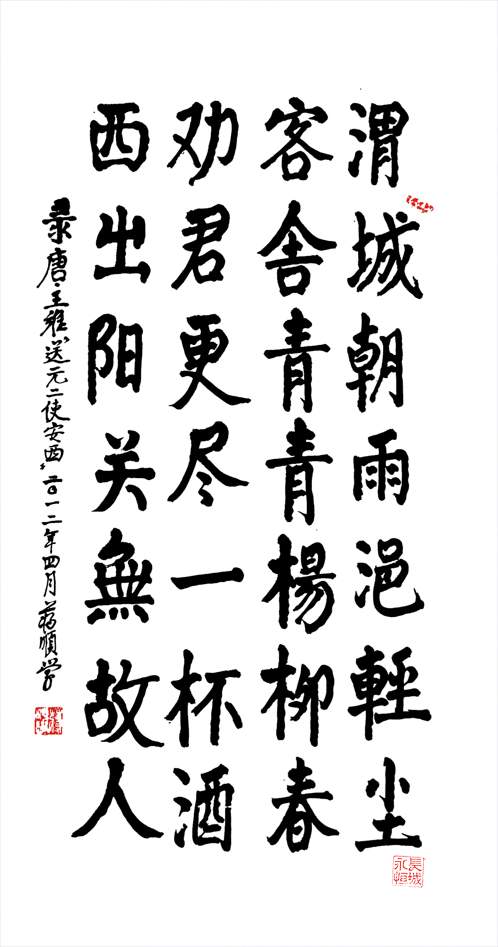 渭城朝雨浥輕尘
客舍青青楊柳春
劝君更尽一杯酒
西出阳关無故人
录唐·王維“送元二使安西”二〇一二年四月 順学
長城永恒